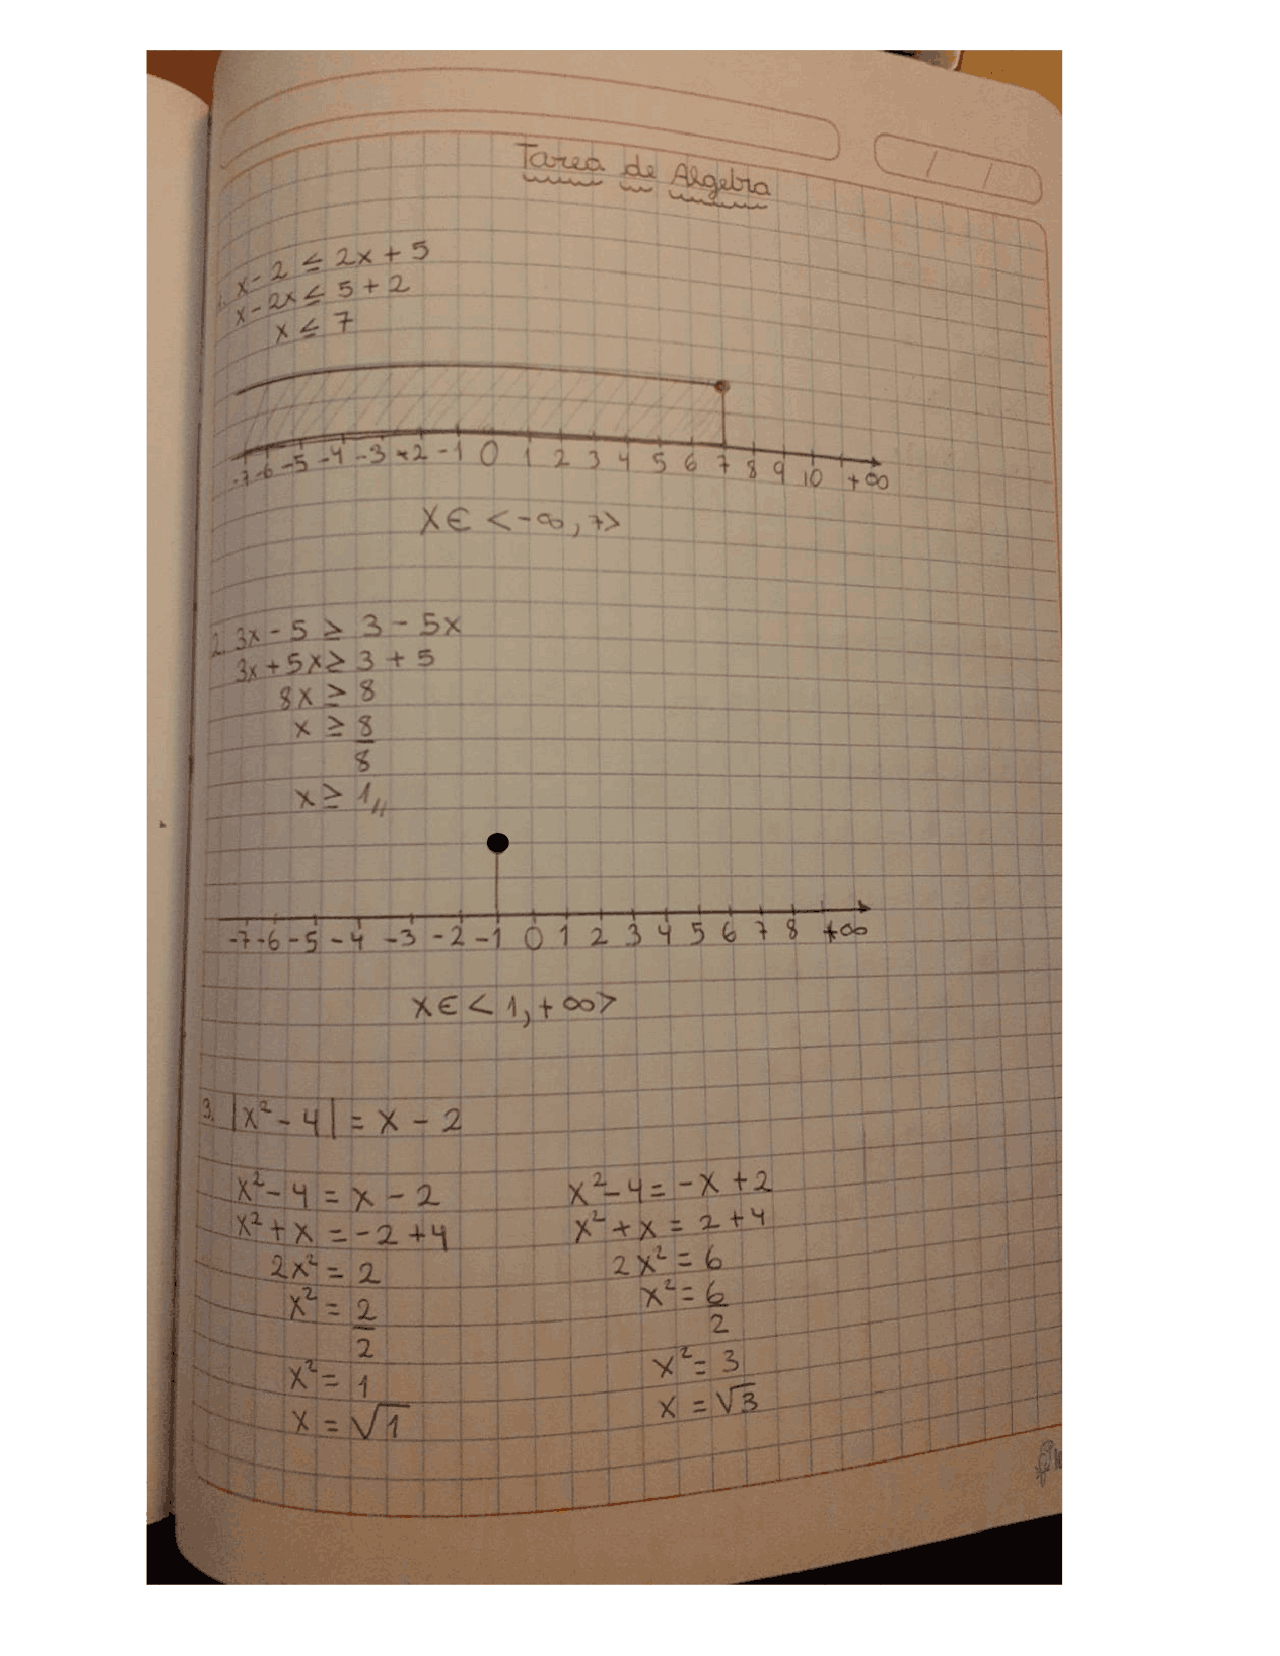 Tarea de Algebra
1. x - 2 ≤ 2x + 5
x - 2x ≤ 5 + 2
x ≤ 7
-7 -6 -5 -4 -3 -2 -1 0 1 2 3 4 5 6 7 8 9 10 +∞
X ∈ < -∞, 7>
2. 3x - 5 ≥ 3 - 5x
3x + 5x ≥ 3 + 5
8x ≥ 8
x ≥ 8
8
x ≥ 1,,
-7 -6 -5 -4 -3 -2 -1 0 1 2 3 4 5 6 7 8 +∞
X ∈ < 1, +∞>
3. |x² - 4| = x - 2
x² - 4 = x - 2
x² + x = -2 + 4
2x² = 2
x² = 2
2
x² = 1
x = √1
x² - 4 = -x + 2
x² + x = 2 + 4
2x² = 6
x² = 6
2
x² = 3
x = √3